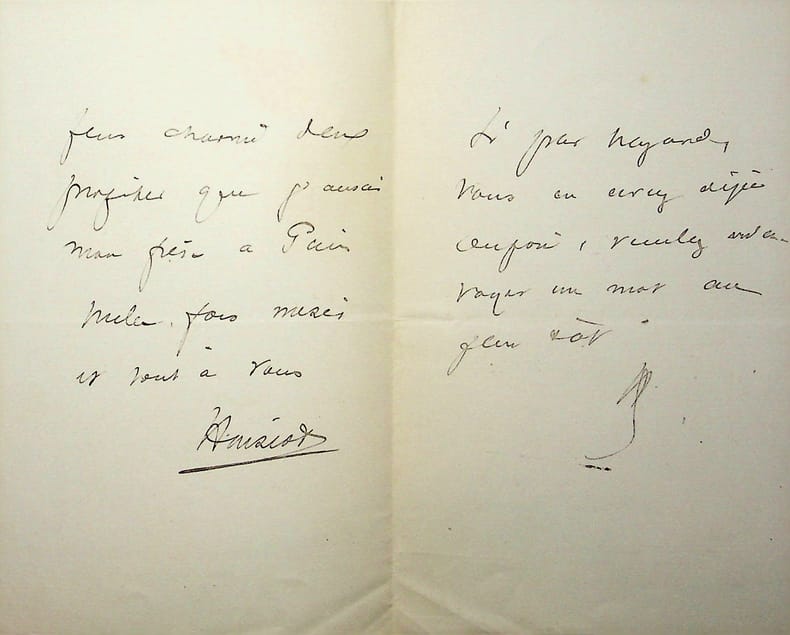 plus charmé d'en
profiter que j'aurai
mon frère à Paris
Mille fois merci
et tout à vous
Si par hasard,
vous en avez déjà
disposé, veuillez m'en-
voyer un mot au
plus tôt